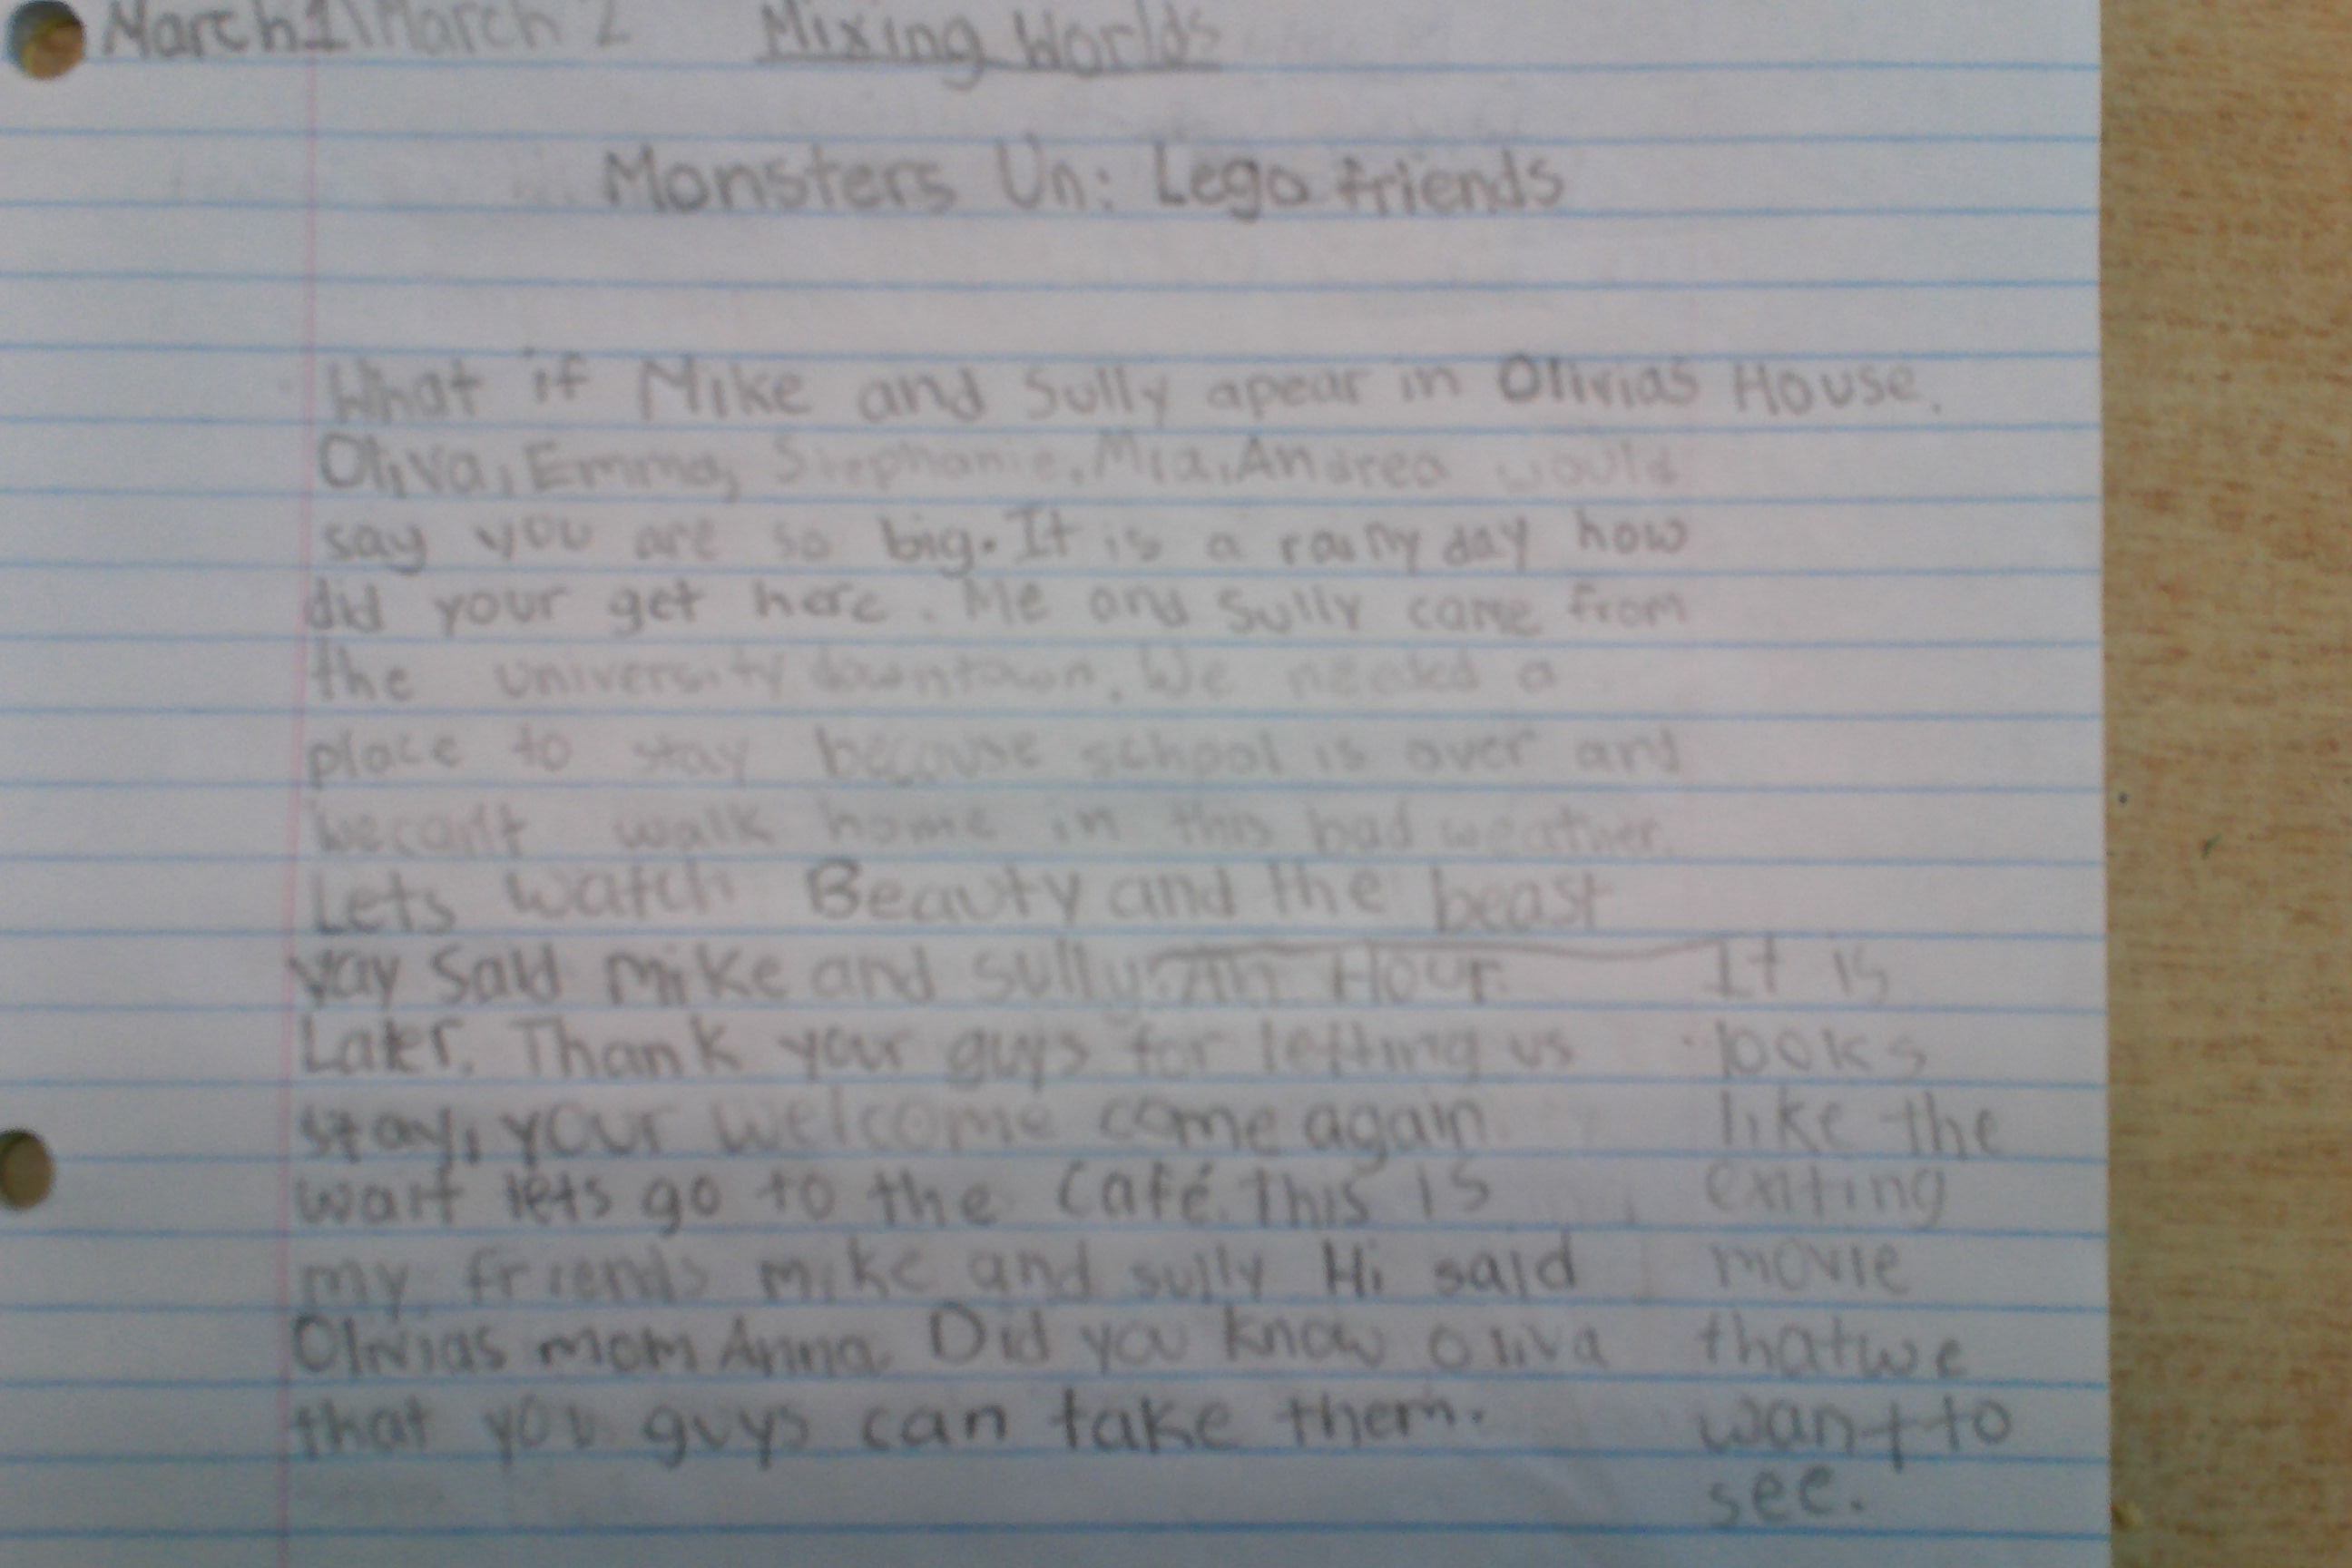 March 1\March 2 Mixing Worlds
Monsters Un: Lego friends
What if Mike and Sully apear in Olivia's House.
Oliva, Emma, Stephanie, Mia, Andrea would
say you are so big. It is a rainy day how
did your get here. Me and Sully came from
the university downtown. We needed a
place to stay because school is over and
we can't walk home in this bad weather.
Lets watch Beauty and the beast
yay said mike and sully. An Hour
Later. Thank your guys for letting us
stay, your welcome come again
wait lets go to the Café. This is
my friends mike and sully Hi said
Olivias mom Anna. Did you know oliva
that you guys can take them.
It is
looks
like the
exiting
movie
that we
want to
see.